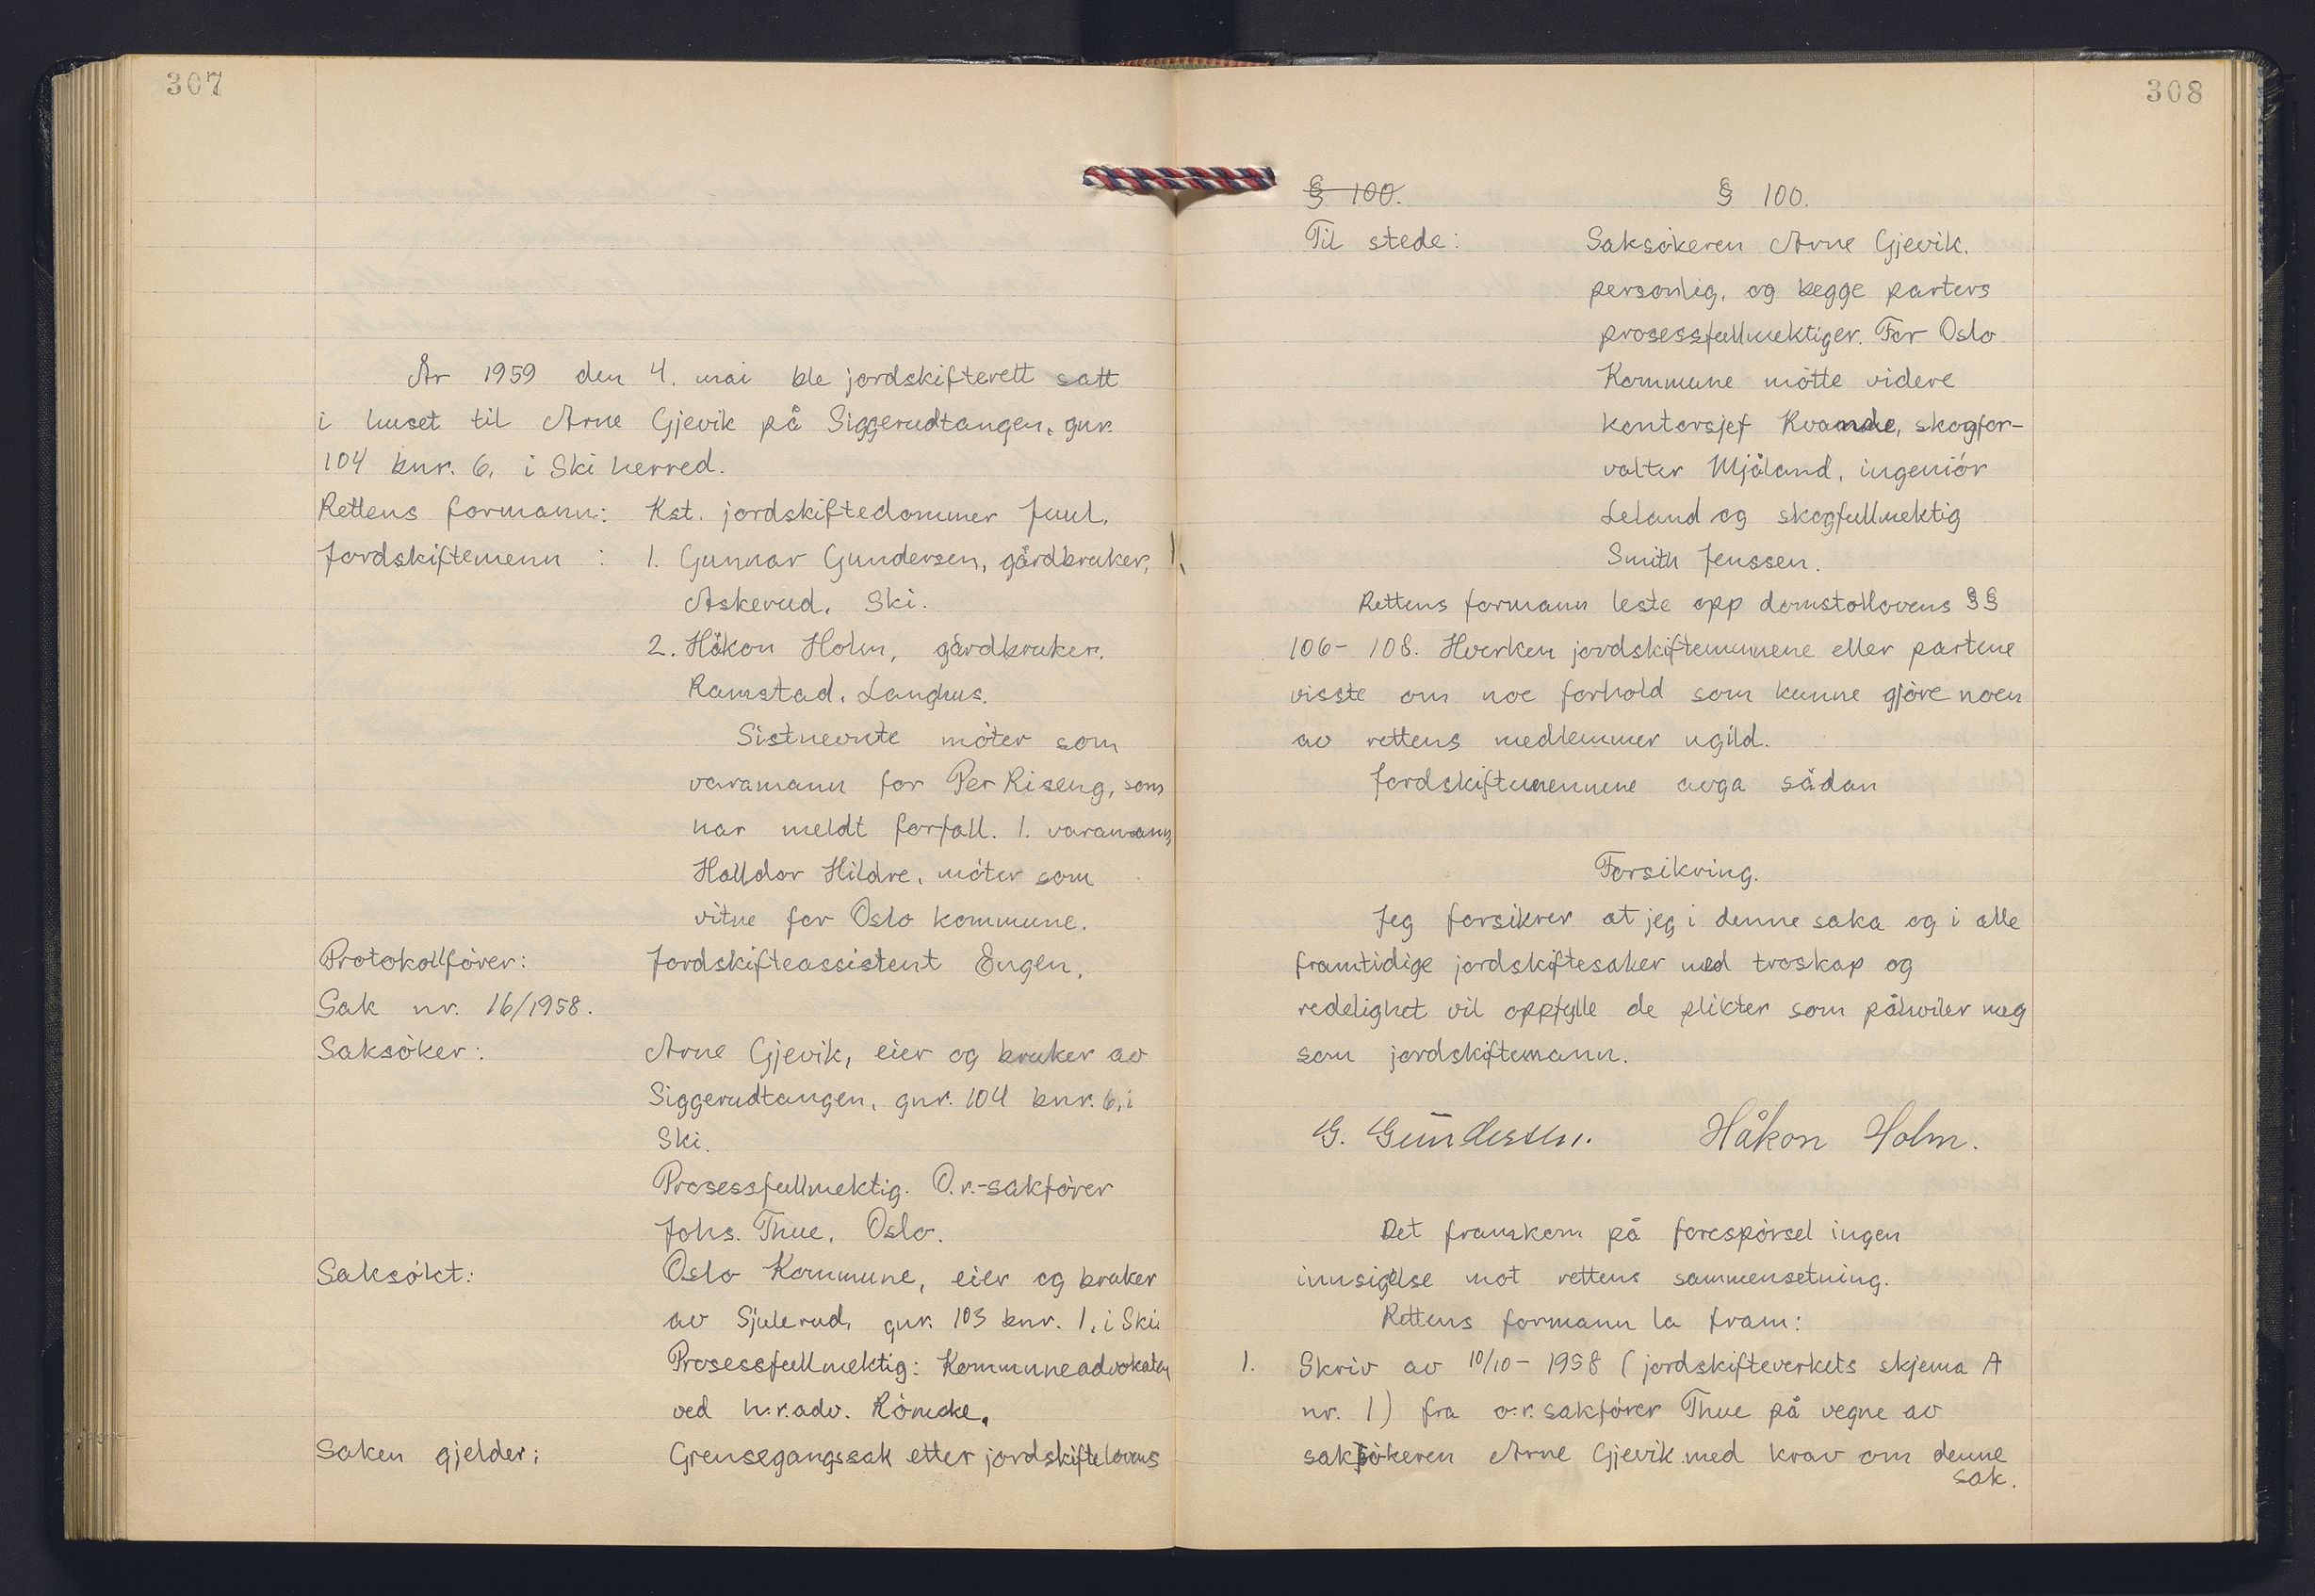 307
År 1959 den 4. mai ble jordskifterett satt
i huset til Arne Gjevik på Siggerudtangen, gnr.
104 bnr. 6, i Ski herred.
Rettens formann: Kst. jordskiftedommer Juul.
Jordskiftemenn : 1. Gunnar Gundersen, gårdbruker,
Askerud, Ski.
2. Håkon Holm, gårdbruker,
Ramstad, Langhus.
Sistnevnte möter som
varamann for Per Riseng, som
har meldt forfall. 1. varamann,
Halldor Hildre, möter som
vitne for Oslo kommune.
Protokollförer: Jordskifteassistent Engen.
Sak nr. 16/1958.
Saksöker: Arne Gjevik, eier og bruker av
Siggerudtangen, gnr. 104 bnr. 6, i
Ski.
Prosessfullmektig. O.r.-sakförer
Johs. Thue, Oslo.
Saksökt: Oslo Kommune, eier og bruker
av Sjulerud, gnr. 103 bnr. 1, i Ski.
Prosessfullmektig: Kommuneadvokaten
ved h.r.adv. Römcke.
Saken gjelder: Grensegangssak etter jordskiftelovens
308
§ 100. § 100.
Til stede: Saksökeren Arne Gjevik.
personlig, og begge parters
prosessfullmektiger. For Oslo
Kommune mötte videre
kontorsjef Kvande, skogfor-
valter Mjåland, ingeniör
Leland og skogfullmektig
Smith Jenssen.
Rettens formann leste opp domstollovens §§
106- 108. Hverken jordskiftemennene eller partene
visste om noe forhold som kunne gjöre noen
av rettens medlemmer ugild.
Jordskiftemennene avga sådan
Forsikring.
Jeg forsikrer at jeg i denne saka og i alle
framtidige jordskiftesaker med troskap og
redelighet vil oppfylle de plikter som påhviler meg
som jordskiftemann.
G. Gundersen. Håkon Holm.
Det framkom på forespörsel ingen
innsigelse mot rettens sammensetning.
Rettens formann la fram:
1. Skriv av 10/10- 1958 (jordskifteverkets skjema A
nr. 1) fra o.r.sakförer Thue på vegne av
saksökeren Arne Gjevik med krav om denne
sak.